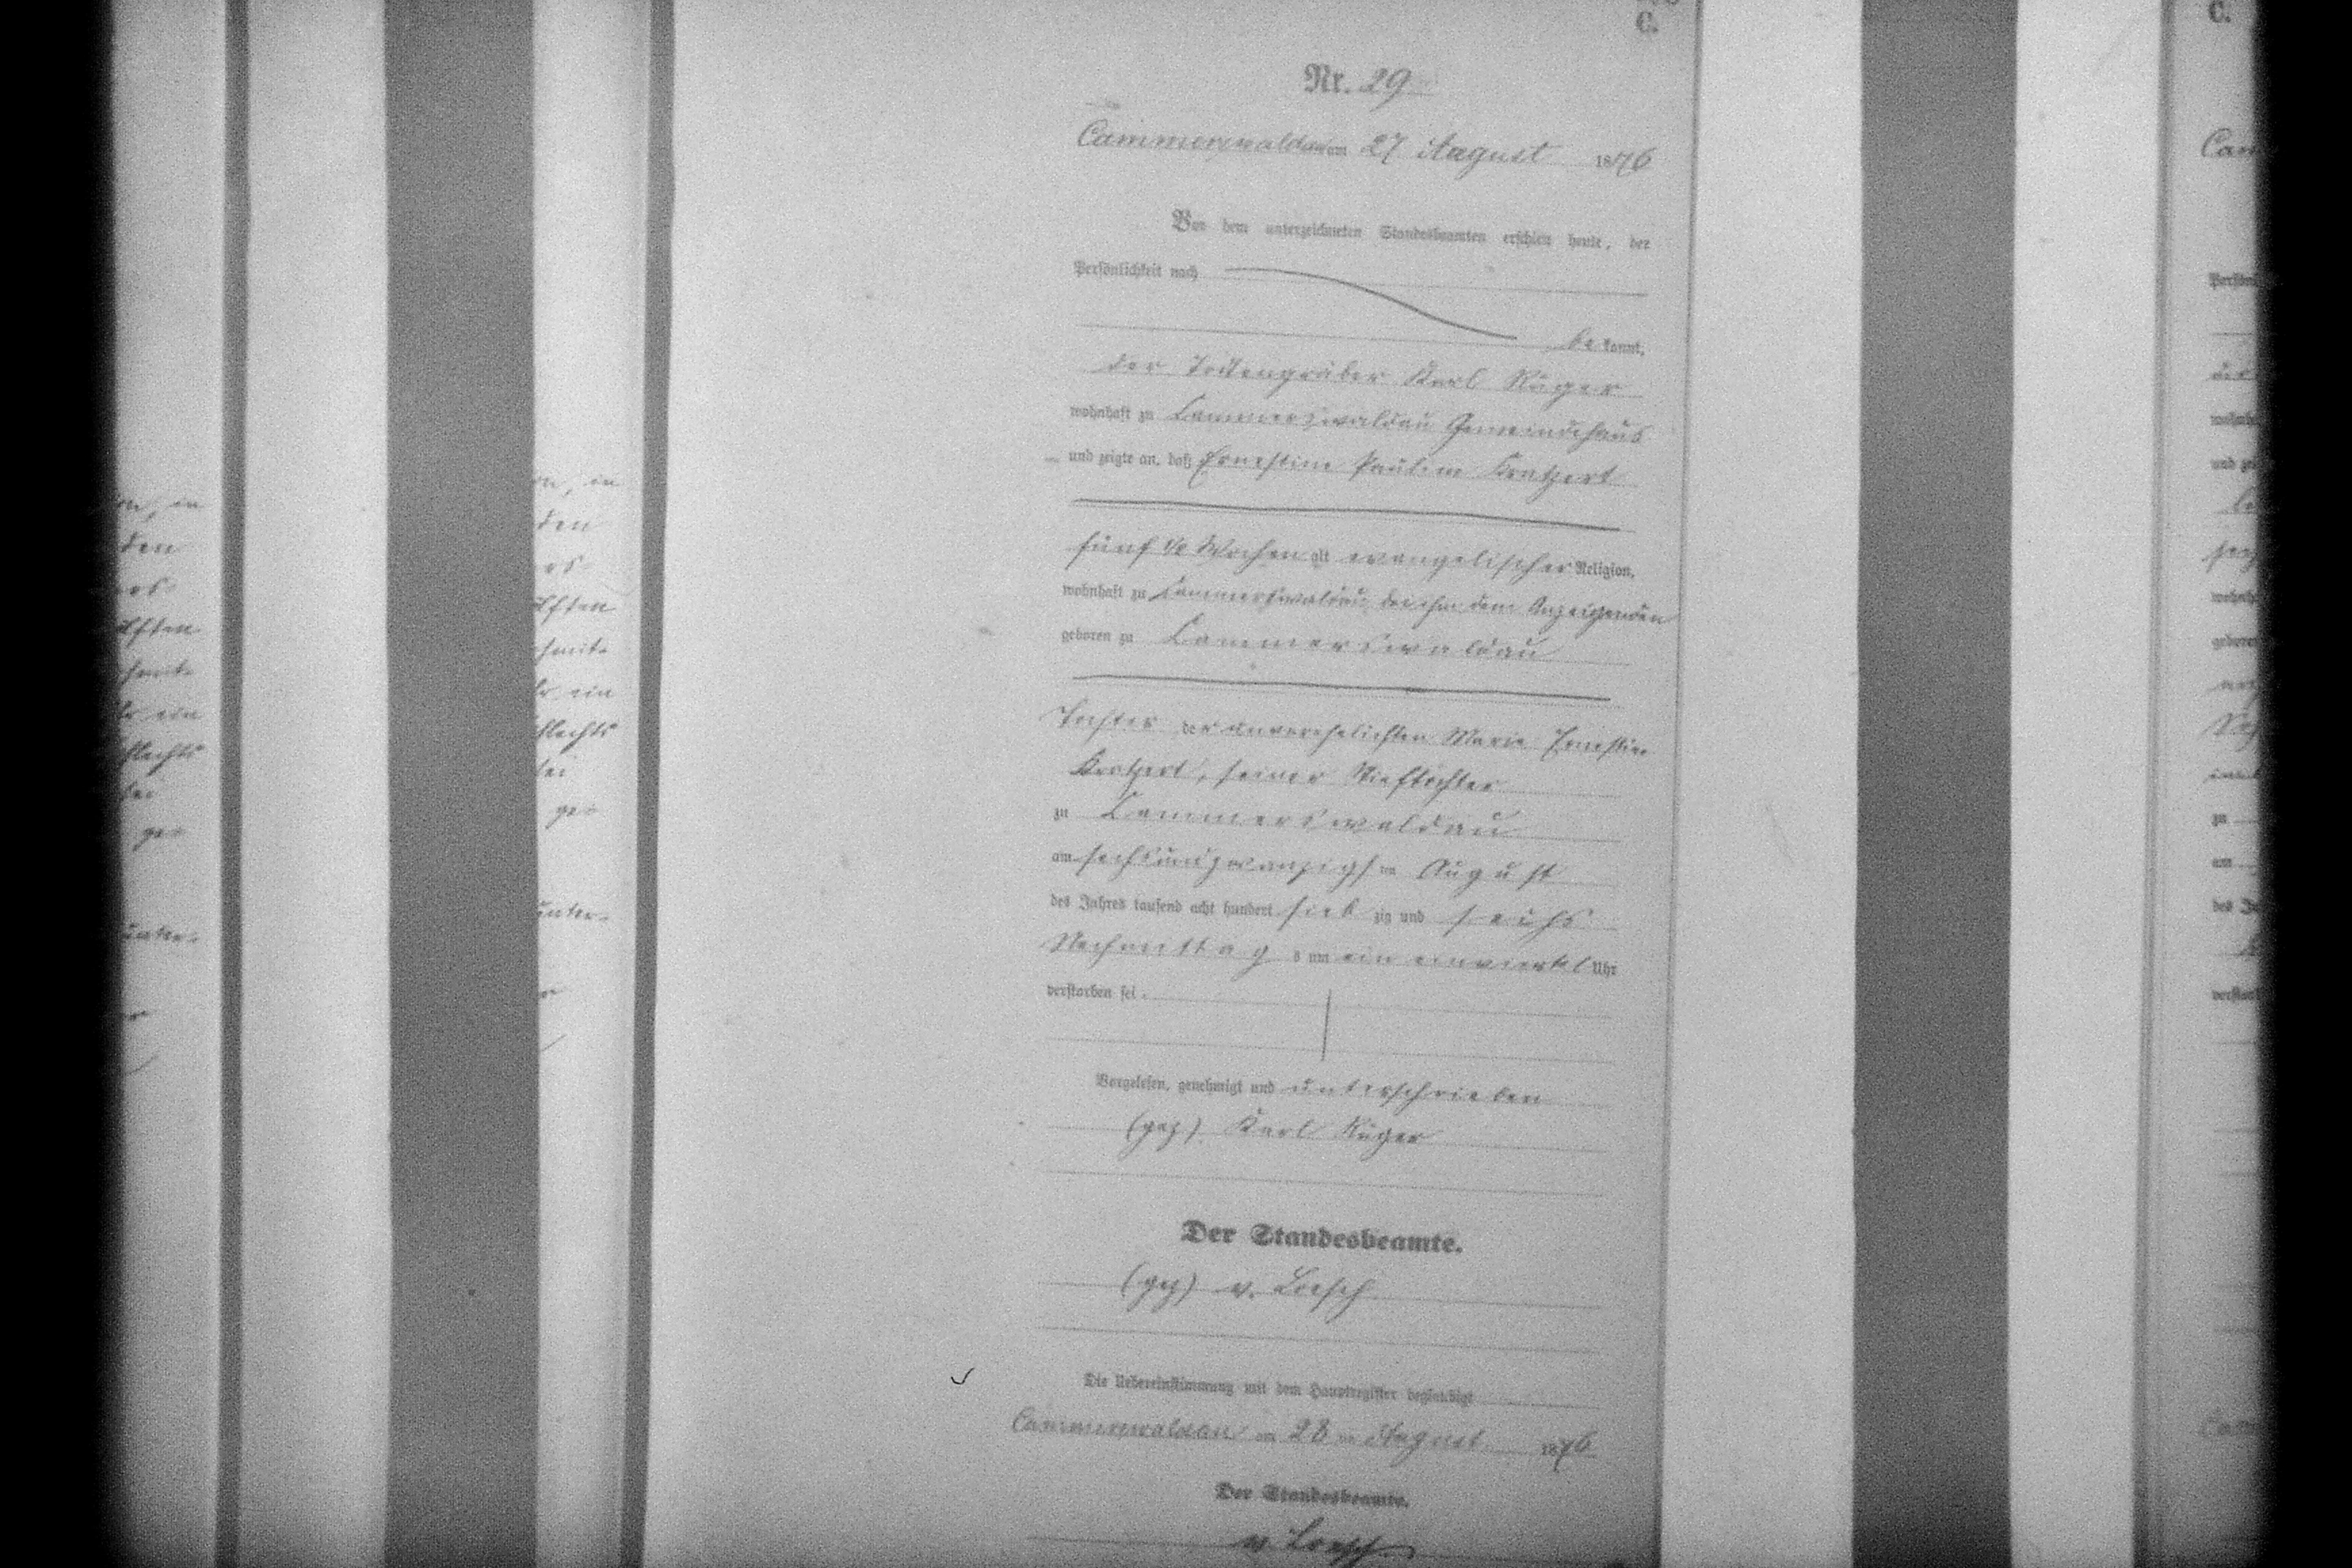 C.
Nr. 29
Cammerswaldau am 27 August 1876
Vor dem unterzeichneten Standesbeamten erschien heute, der
Persönlichkeit nach
be kannt,
der Todtengräber Karl Rüger
wohnhaft zu Cammerswaldau Gemeindehaus
und zeigte an, daß Ernestine Pauline Kratzert
fünf 1/2 Wochen alt evangelischer Religion,
wohnhaft zu Cammerswaldau bei ihm dem Anzeigenden
geboren zu Cammerswaldau
Tochter der unverehelichten Marie Ernestine
Kratzert, seiner Stieftochter
zu Cammerswaldau
am sechsundzwanzigsten August
des Jahres tausend acht hundert sieb zig und sechs
Nachmittag s um ein einviertel Uhr
verstorben sei.
Vorgelesen, genehmigt und unterschrieben
(gez) Karl Rüger
Der Standesbeamte.
(gez) v. Loesch
Die Uebereinstimmung mit dem Hauptregister beglaubigt
Cammerswaldau am 28 ten August 1876
Der Standesbeamte.
v. Loesch